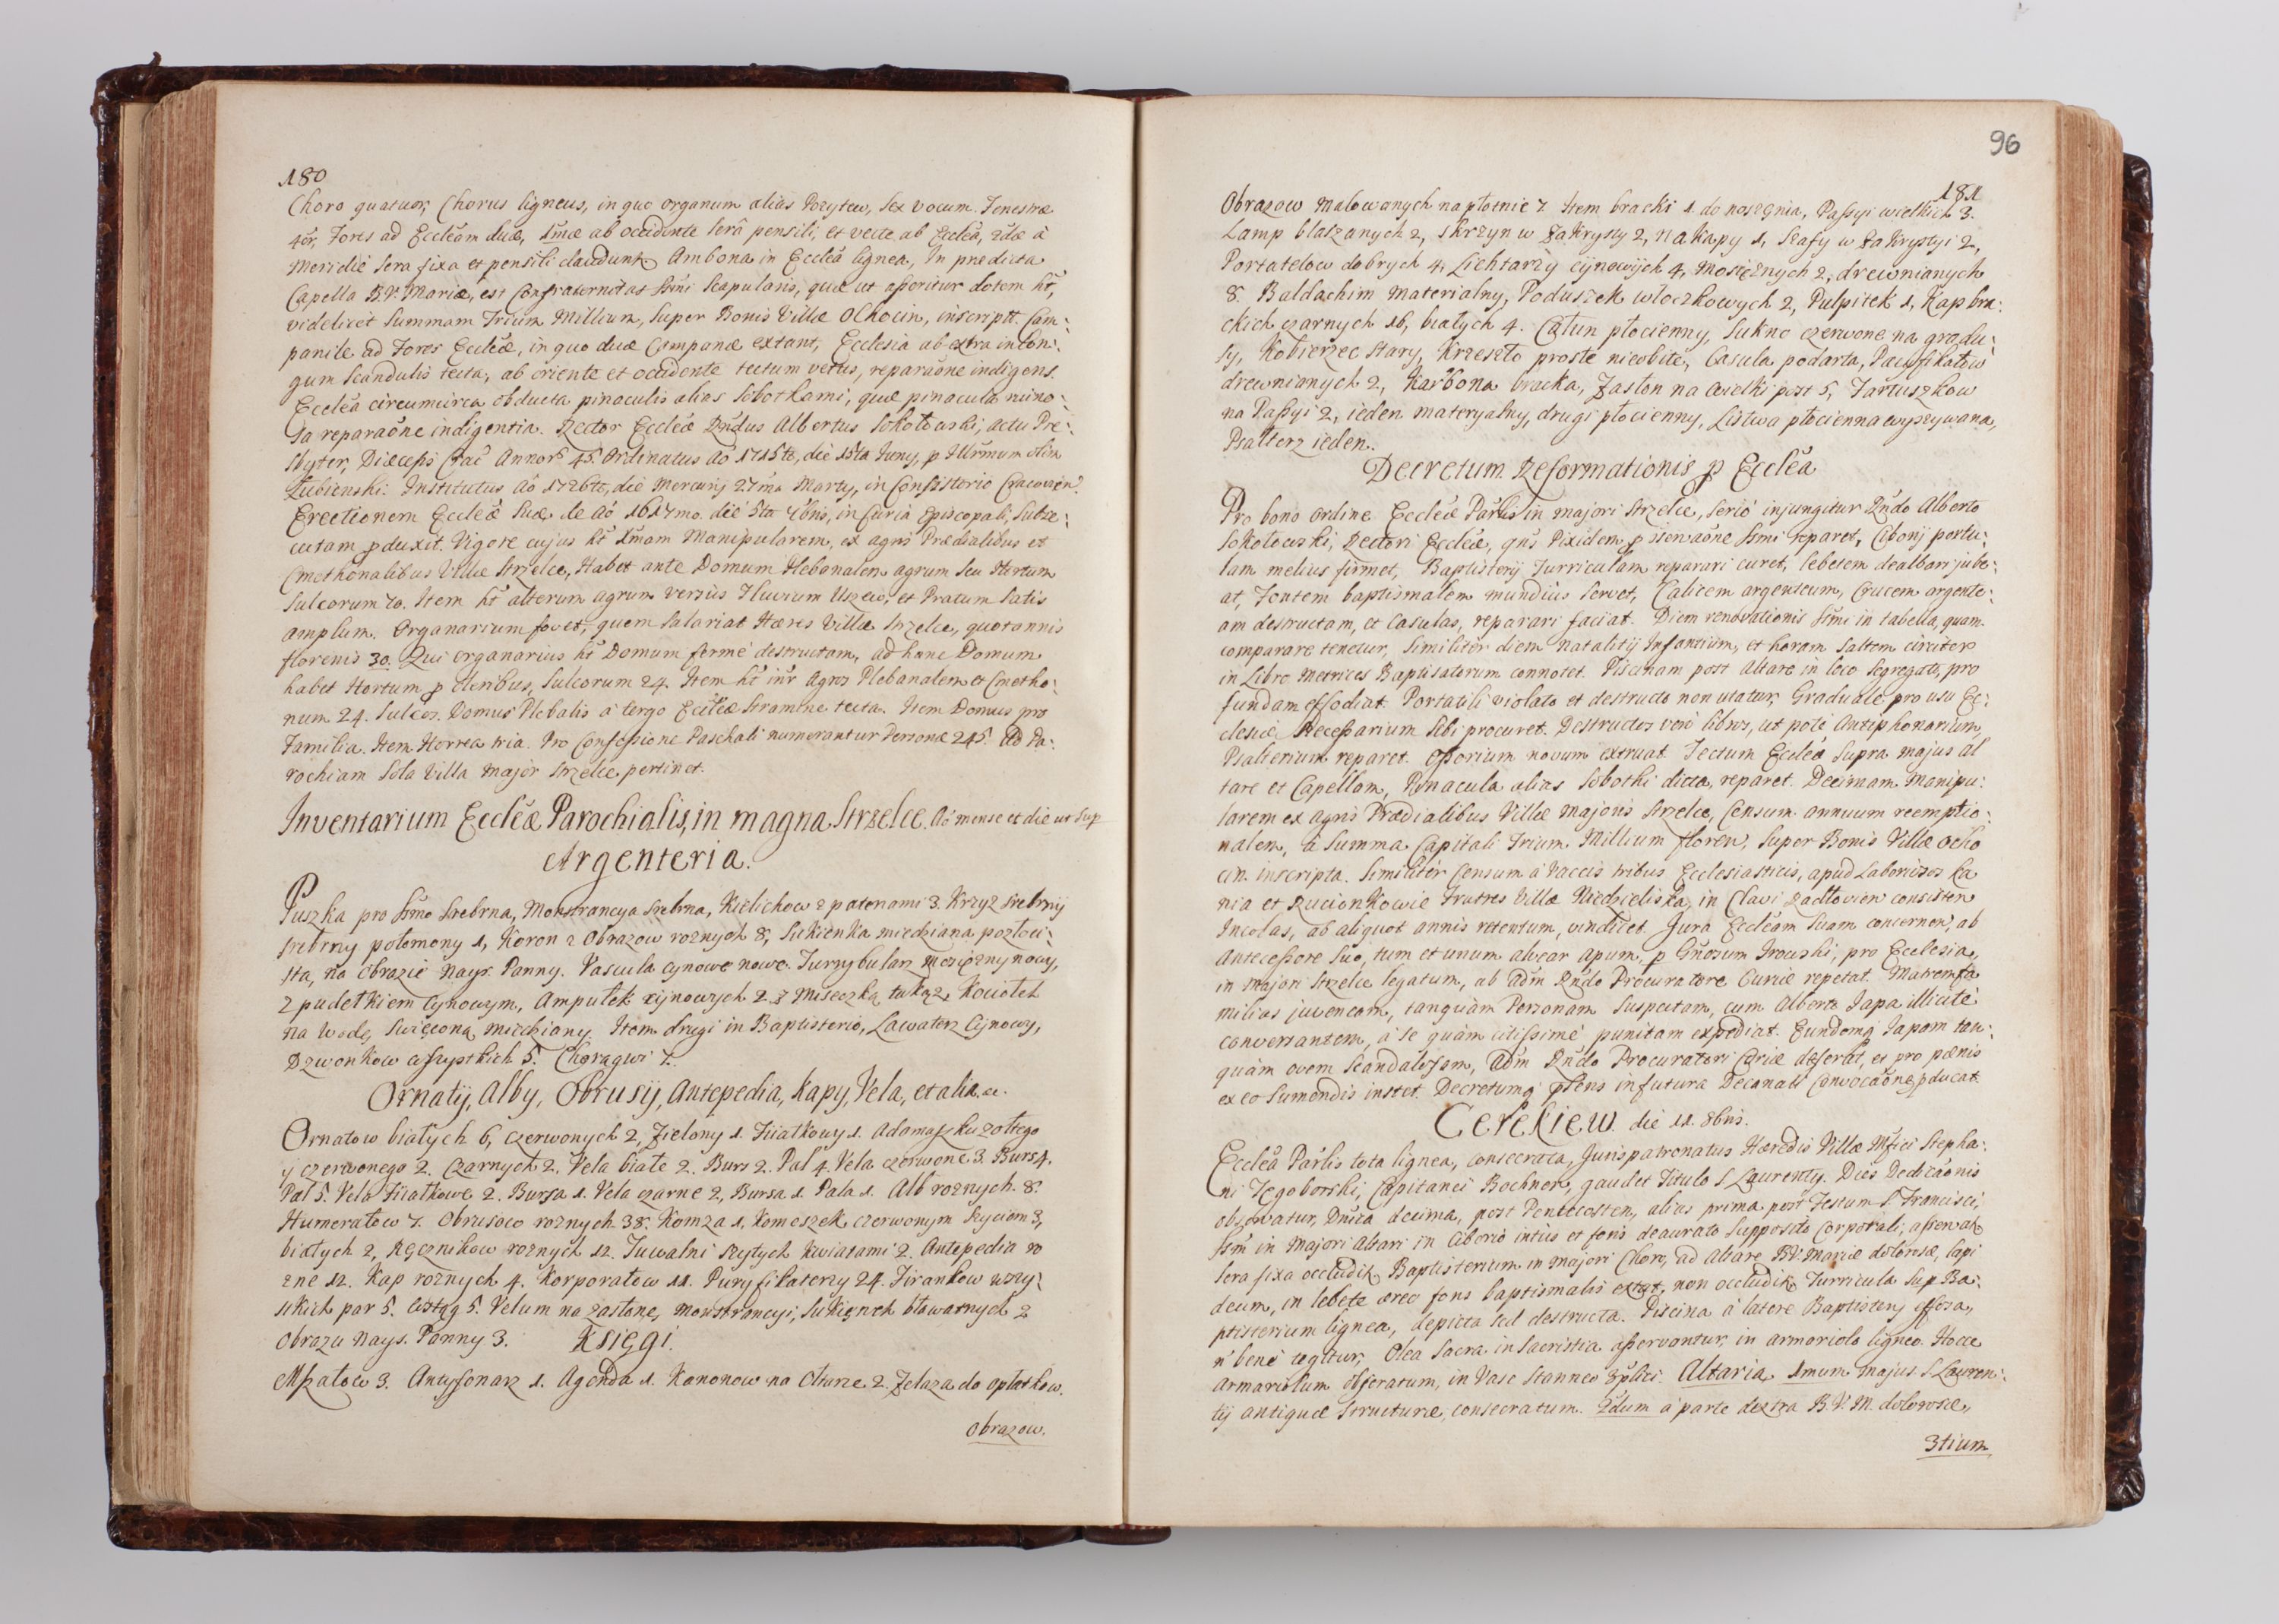 180
Choro quatuor, Chorus ligneus, in quo organum alias Pozytew, sex vocum. Fenestræ
4or, Fores ad Ecclẽam duæ, 1mæ ab occidente serâ pensili, et vecte ab Ecclẽa, 2dæ à
Meridie sera fixa et pensili claudunt. Ambona in Ecclẽa lignea, In predicta
Capella B.V. Mariæ, est Confraternitas Ssmi Scapularis, quæ ut asseritur dotem ht,
videlicet Summam Trium Millium, super Bonis Villæ Ochocin, inscript. Cam:
panile ad Fores Ecclẽæ, in quo duæ Campanæ extant, Ecclesia ab extra in lon:
gum Scandulis tecta, ab oriente et occidente tectum vetus, reparaõne indigens.
Ecclẽa circumcirca obducta pinaculis alias Sobotkami, quæ pinacula ruino:
sa reparaõne indigentia. Rector Ecclẽæ Rndus Albertus Sokołowski, actu Pre:
sbyter, Diæcesis Crac Annor 45. Ordinatus Ao 1715to, die 15ta Juny, p Illrmum olim
Łubienski. Institutus Ao 1726to, die Mercurij 27ma Marty, in Consistorio Cracovien.
Erectionem Ecclẽæ suæ de Ao 1617mo. die 5ta 7bris, in Curia Episcopali, Subse:
cutam pduxit. Vigore cujus ht Xmam Manipularem, ex agris Prædialibus et
Cmethonalibus Villæ Strzelce, Habet ante Domum Plebanalem agrum seu Hortum
Sulcorum 70. Item ht alterum agrum versus Fluvium Uszew, et Pratum satis
amplum. Organarium fovet, quem salariat Hæres Villæ Strzelce, quotannis
florenis 30. Qui organarius ht Domum fermè destructam, ad hanc Domum
habet Hortum p oleribus, Sulcorum 24. Item ht intr Agros Plebanalem et Cmetho:
num 24. Sulcos. Domus Plebalis à tergo Ecclẽæ stramine tecta. Item Domus pro
Familia. Item Horrea tria. Pro Confessione Paschali numerantur Personæ 245. Ad Pa:
rochiam sola Villa Major Strzelce pertinet.
Inventarium Ecclẽæ Parochialis, in magna Strzelce. Ao mense et die ut sup
Argenteria.
Puszka pro Ssmo srebrna, Monstrancya srebrna, Kielichow z patenami 3. Krzyz srebrnij
srebrny połomony 1, Koron z Obrazow roznych 8, Sukienka miedziana pozłoci:
sta, na obrazie Nays. Panny. Vascula cynowe nowe. Turrybularz mosięzny nowy,
z pudełkiem cynowym, Ampułek cijnowych 2. z Miseczką takąz. Kociołek
na Wodę Swięconą miedziany. Item drugi in Baptisterio, Lawaterz Cijnowy,
Dzwonkow wszystkich 5. Chorągwi 7.
Ornatij, Alby, Obrusij, Antepedia, Kapy, Vela, et alia &c.
Ornatow białych 6, czerwonych 2, Zielony 1. Fiiałkowy 1. Adamaszku zołtego
y czerwonego 2. Czarnych 2. Vela białe 2. Burs 2. Pal 4. Vela czerwone 3. Burs 4.
Pal 5. Vela Fiiałkowe 2. Bursa 1. Vela czarne 2, Bursa 1. Pala 1. Alb roznych. 8.
Humerałow 7. Obrusow roznych 38. Komza 1. Komeszek czerwonym szyciom 3,
białych 2, Ręcznikow roznych 12. Tuwalni szytych kwiatami 2. Antepedia ro
zne 12. Kap roznych 4. Korporałow 11. Puryfikaterzy 24. Firankow wszy:
stkich par 5. Wstęg 5. Velum na zasłonę, Monstrancyi, Sukienek bławatnych z
Obrazu Nays. Panny 3. Księgi.
Mszałow 3. Antyfonarz 1. Agenda 1. Kanonow na Ołtarze 2. Zelaza do opłatkow.
Obrazow.
96
181
Obrazow Malowanych na płotnie 7. Item bracki 1. do noszenia, Passyi wielkich 3.
Lamp blaszanych 2, skrzyn w Zakrysty 2, na kapy 1, Szafy w Zakrystyi 2,
Portatelow dobrych 4, Lichtarzy cijnowijch 4, Mosięznych 2, drewnianych
8. Baldachim materialny, Poduszek włoczkowych 2, Pulpitek 1, Kap bra:
ckich czarnych 16, białych 4. Całun płocienny, Sukno czerwone na gradu:
sy, Kobierzec stary, Krzesło proste nieobite, Casula podarta, Pacyfikałow
drewnianych 2, Karbona bracka, Zasłon na Wielki post 5, Fartuszkow
na Passyi 2, ieden materyalny, drugi płocienny, Listwa płocienna wyszywana,
Psałterz ieden.
Decretum Reformationis p Ecclẽa
Pro bono ordine Ecclẽæ Parlis in majori Strzelce, seriò injungitur Rndo Alberto
Sokołowski, Rectori Ecclẽæ, qtus Pixidem p sservaõne Ssmi reparet, Cibory portu:
lam melius firmet, Baptistery Turriculam reparari curet, lebetem dealbari jube:
at, Fontem baptismalem mundiùs servet, Calicem argenteum, Crucem argente:
am destructam, et Casulas, reparari faciat. Diem renovationis Ssmi in tabella, quam
comparare tenetur, Similiter diem natalitij Infantium, et horam saltem circiter
in Libro Metrices Baptisatorum connotet. Piscinam post Altare in loco segregato, pro
fundam effodiat. Portatili violato et destructo non utatur, Graduale pro usu Ec:
clesiæ Necessarium sibi procuret. Destructos verò libros, ut potè Antiphonarium,
Psalterium reparet. Ossorium novum extruat. Tectum Ecclẽæ supra majus al
tare et Capellam, Pinacula alias Sobotki dicta, reparet. Decimam Manipu:
larem ex Agris Prædialibus Villæ Majoris Strzelce, Censum annuum reemptio:
nalem, à Summa Capitali Trium Millium floren, super Bonis Villæ Ocho
cin inscripta. Similitèr Censum à Vaccis tribus Ecclesiasticis, apud Laboriosos Ka
nia et Rucionkowie Fratres Villæ Niedzieliska, in Clavi Radłovien consisten
Incolas, ab aliquot annis retentum, vindicet. Jura Ecclẽam suam concernen, ab
Antecessore suo, tum et unum alvear apum, p Gnosum Irowski, pro Ecclesia,
in Majori Strzelce legatum, ab Adm Rndo Procuratore Curiæ repetat. Matremfa
milias juvencam, tanquàm Personam suspectam, cum Alberto Japa illicitè
conversantem, à se quàm citissimè, punitam expediat. Eundemq Japam tan:
quàm ovem scandalosam, Adm Rndo Procuratori Curiæ deferat, et pro pœnis
ex eo sumendis instet. Decretumq psens in futura Decanali Convocaõne pducat.
Cerekiew. die 11. 8bris.
Ecclẽa Parlis tota lignea, consecrata, Jurispatronatus Hæredis Villæ Mfici Stepha:
ni Zegoborski, Capitanei Bochnen, gaudet Titulo S Laurenty. Dies Dedicaõnis
observatur, Dnica decima, post Pentecosten, alias prima post Festum S. Francisci,
Ssm in Majori Altari in Ciborio intùs et foris deaurato supposito Corporali, asservat,
Sera fixa occludit. Baptisterium in Majori Choro, ad Altare B.V. Mariæ dolorosæ, lapi
deum, in lebete æreo fons baptismalis extat, non occludit. Turricula sup Ba:
ptisterium lignea, depicta sed destructa. Piscina à latere Baptistery effossa,
n benè tegitur, Olea sacra in Sacristia asservantur, in armoriolo ligneo. Hocce
Armariolum obseratum, in Vase stanneo 3plici. Altaria, 1mum Majus S Lauren:
tij antiquæ structuræ, consecratum. 2dum à parte dextra B.V.M. dolorosæ,
3tium